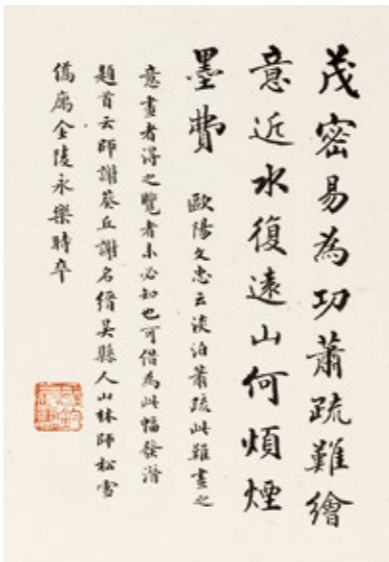 茂密易為功蕭疏難繪
意近水復遠山何煩煙
墨費 歐陽文忠云淡泊蕭疏此難畫之
意畫者得之覽者未必知也可借為此幅發潛
題首云師謝葵丘謝名縉吳縣人山林師松雪
僑寓金陵永樂時卒